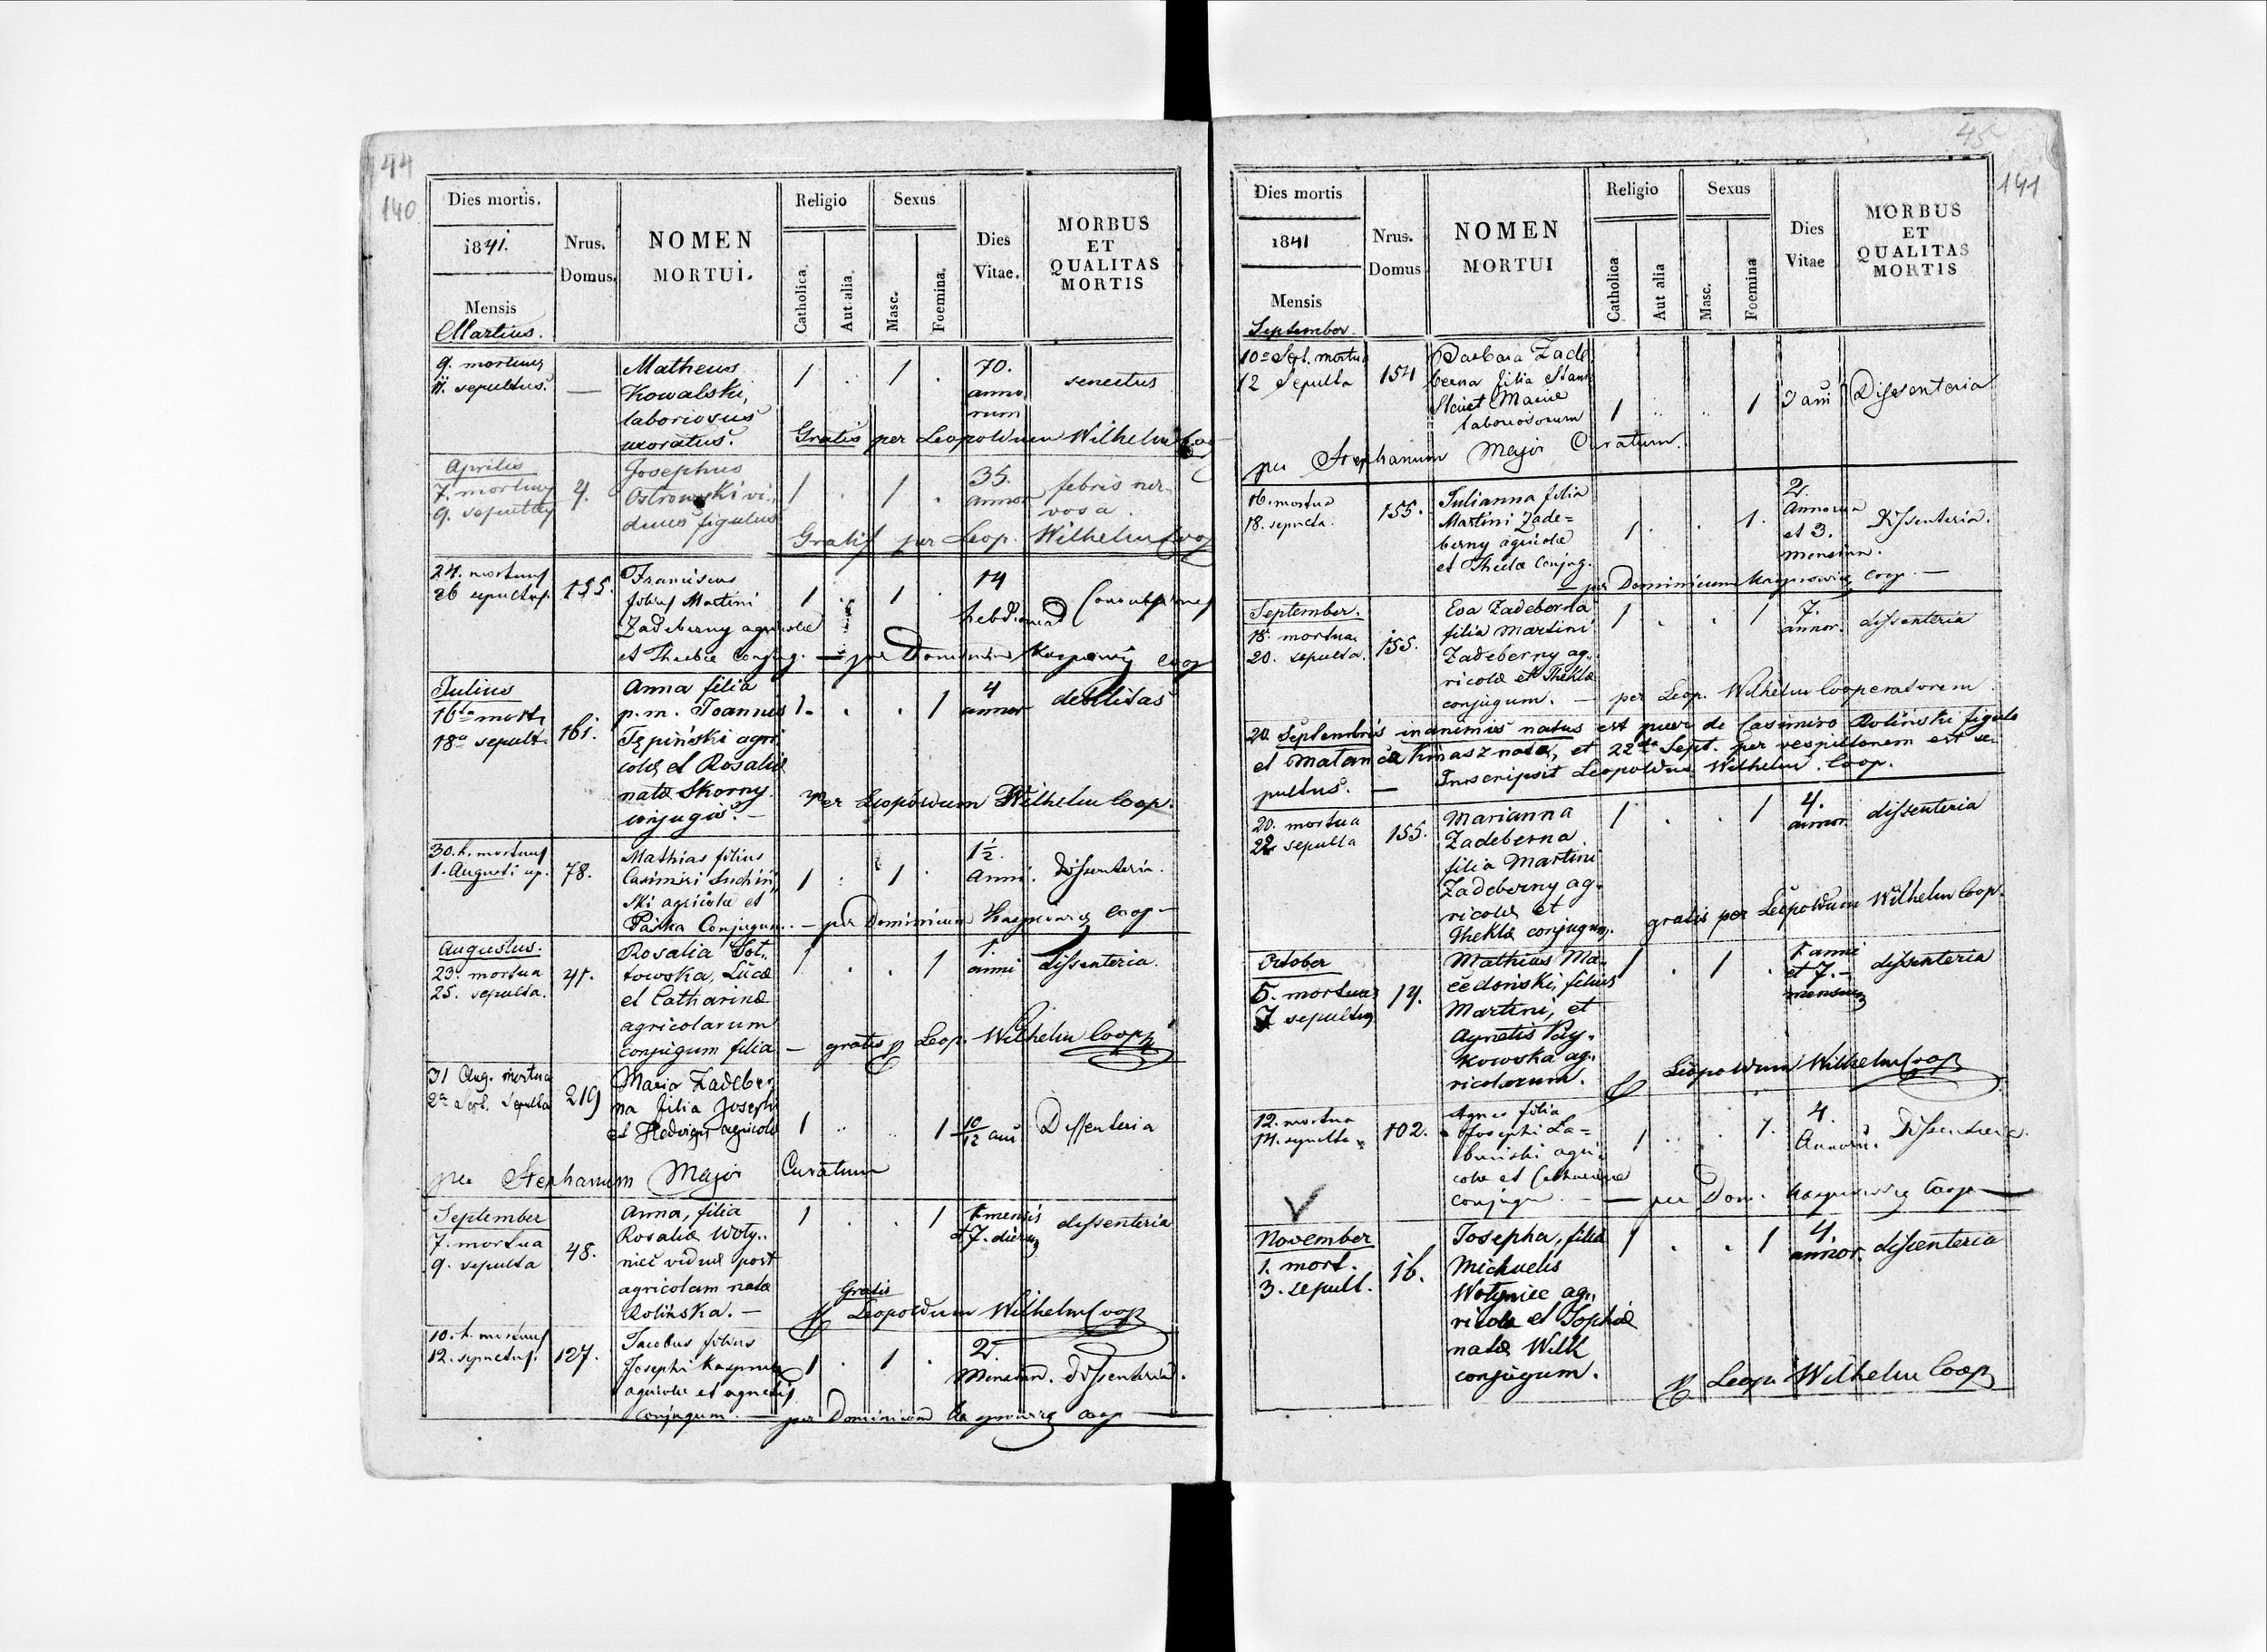 44
140
Dies mortis.
1841.
Mensis
Martius.
Nrus.
Domus.
NOMEN
MORTUI.
Religio
Catholica.
Aut alia.
Sexus
Masc.
Foemina.
Dies
Vitae.
MORBUS
ET
QUALITAS
MORTIS
9. mortuus
11. sepultus.
—
Matheus
Kowalski,
laboriosus
uxoratus.
1 . 1 .
70.
anno
rum
senectus
Gratis per Leopoldum Wilhelm
Aprilis
7. mortuus
9. sepultus
4.
Josephus
Ostrowski vi,,
duus figulus
1 . 1 .
35.
annor
febris ner
vosa.
Gratis per Leop. Wilhelm Coop
24. mortuus
26 sepultus.
155.
Franciscus
filius Martini
Zadeberny agricolae
et Theclae Conjug.
1 . 1 .
14
hebdomad
— per Dominicum Kasprowicz Coop
Julius
16ta mort.
18a sepult.
161.
Anna filia
p.m. Joannis
Tępiński agri
colae et Rosaliae
natae Skorny
conjugum. —
1. . . 1
4
annor
debilitas
Per Leopoldum Wilhelm Coop.
30. h. mortuus
1. Augusti
78.
Mathias filius
Casimiri Suchiń
ski agricolae et
Conjugum.
1 . 1 .
1½.
Anni.
Dissenteria.
— per Dominicum Kasprowicz Coop —
Augustus.
23. mortua
25. sepulta.
41.
Rosalia Soł,,
towska, Lucae
et Catharinae
agricolarum
conjugum filia
1 . . 1
1.
anni
dissenteria.
— gratis p Leop. Wilhelm Coop
31 Aug. mortua
2a Sept. Sepulta
219
Maria Zadeber
na filia Josephi
et Hedvigis agricolae
1 .. .. 1
10/12 ani
Dissenteria
per Stephanum Major Curatum
September
7. mortua
9. sepulta
48.
Anna, filia
Rosaliae Woły,,
niec viduae post
agricolam natae
Rolińska. —
1 . . 1
1 mensis
7. dierum
dissenteria
Gratis
p Leopoldum Wilhelm Coop
10. h. mortuus
12. sepultus.
127.
Jacobus filius
Josephi Kasprowicz
agricolae et agnetis
conjugum.
1 . 1 .
2.
Mensium.
Dissenteria.
— per Dominicum Kasprowicz Coop —
45
141
Dies mortis
1841
Mensis
September.
Nrus.
Domus
NOMEN
MORTUI
Religio
Catholica
Aut alia
Sexus
Masc.
Foemina
Dies
Vitae
MORBUS
ET
QUALITAS
MORTIS
10a Sept. mortua
12 Sepulta
154
Barbara Zade
berna filia Stani
slai et Mariae
laboriosorum
1 .. .. 1
3 ani
Dissenteria
per Stephanum Major Curatum.
16. mortua
18. sepulta.
155.
Julianna filia
Martini Zade=
berny agricolae
et Theclae Conjug.
1 . . 1.
2.
Annorum
et 3.
mensium.
Dissenteria.
— per Dominicum Kasprowicz Coop —
September.
18. mortua.
20. sepulta.
155.
Eva Zadeberna
filia Martini
Zadeberny ag,,
ricolae et Theklae
conjugum. —
1 . . 1
7.
annor.
dissenteria
per Leop. Wilhelm Cooperatorem
20. Septembris inanimis natus est puer de Casimiro Roliński figulo
et Kmasz nata, et 22da Sept. per vespillonem est se,,
pultus. — Inscripsit Leopoldus Wilhelm. Coop.
20. mortua
22 sepulta
155.
Marianna
Zadeberna
filia Martini
Zadeberny ag,,
ricolae et
Theklae conjugum.
1 . . 1
4.
annor.
dissenteria
gratis per Leopoldum Wilhelm Coop.
October
5. mortuus
7 sepultus
14.
Mathias Ma,,
cedoński, filius
Martini, et
Agnetis
ag,,
ricolarum.
1 . 1 .
1 anni
et 7. —
mensium
dissenteria
p Leopoldum Wilhelm Coop
12. mortua
14. sepulta
102.
Agnes filia
Josephi La=
agri
colae et Catharinae
conjugum
1 . . 1.
4.
Annorum.
Dissenteria.
— per Dom. Kasprowicz Coop —
November
1. mort.
3. sepult.
16.
Josepha, filia
Michaelis
Wołyniec ag,,
ricolae et Sophiae
natae Wilk
conjugum.
1 . . 1
4.
annor.
dissenteria
p Leop. Wilhelm Coop